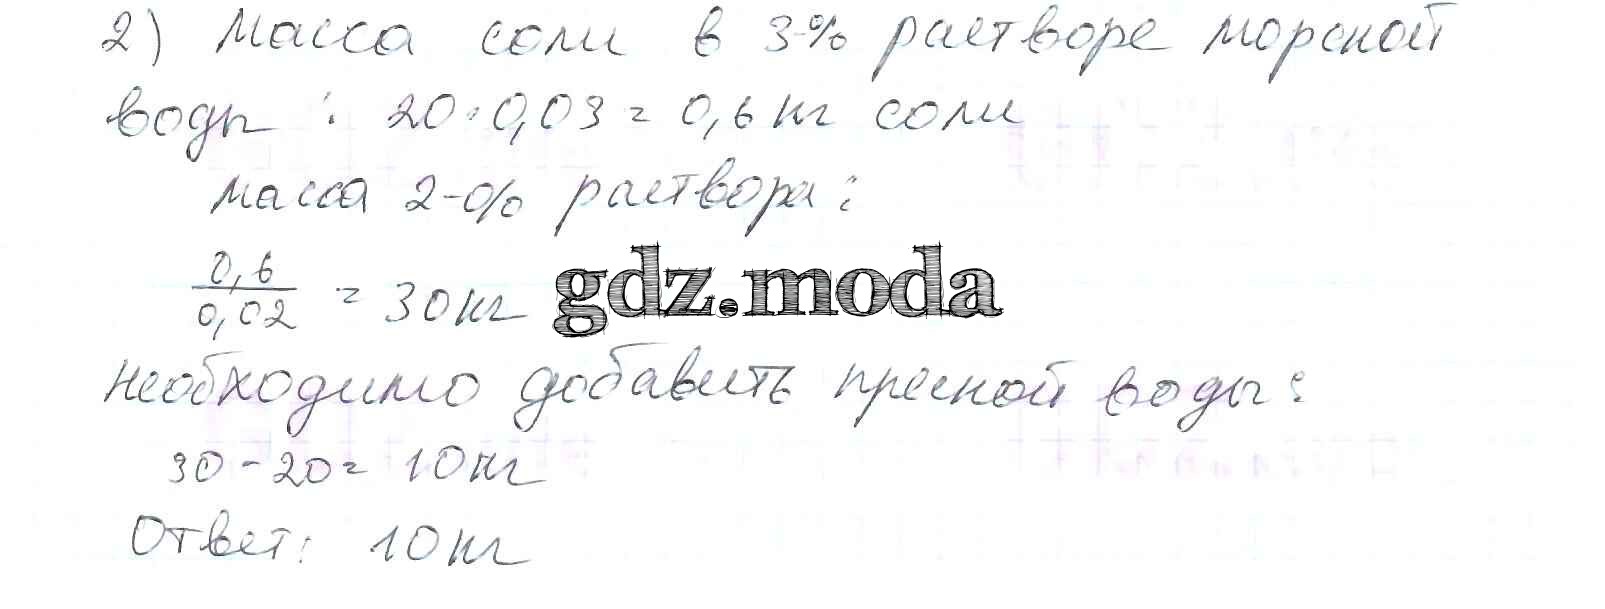 2) Масса соли в 3-% растворе морской
воды : 20·0,03 = 0,6 кг соли
Масса 2-% раствора :
0,6
0,02
= 30 кг
gdz.moda
Необходимо добавить пресной воды :
30 - 20 = 10 кг
Ответ: 10 кг